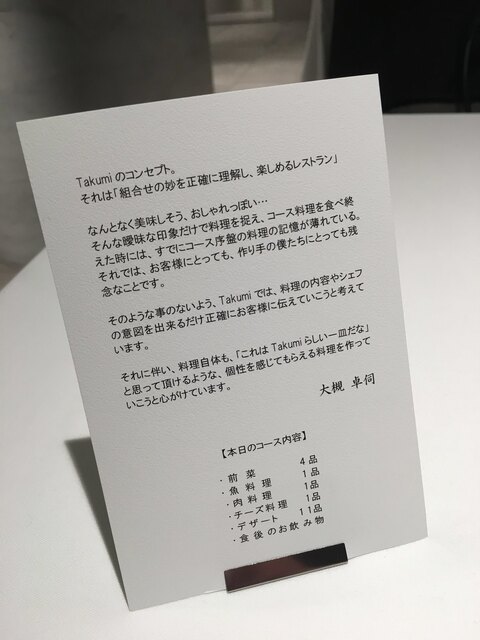 Takumiのコンセプト。
それは「組合せの妙を正確に理解し、楽しめるレストラン」
なんとなく美味しそう、おしゃれっぽい…
そんな曖昧な印象だけで料理を捉え、コース料理を食べ終
えた時には、すでにコース序盤の料理の記憶が薄れている。
それでは、お客様にとっても、作り手の僕たちにとっても残
念なことです。
そのような事のないよう、Takumiでは、料理の内容やシェフ
の意図を出来るだけ正確にお客様に伝えていこうと考えて
います。
それに伴い、料理自体も、「これは Takumi らしい一皿だな」
と思って頂けるような、個性を感じてもらえる料理を作って
いこうと心がけています。
大槻 卓伺
【本日のコース内容】
・前菜 4品
・魚料理 1品
・肉料理 1品
・チーズ料理 1品
・デザート 11品
・食後のお飲み物